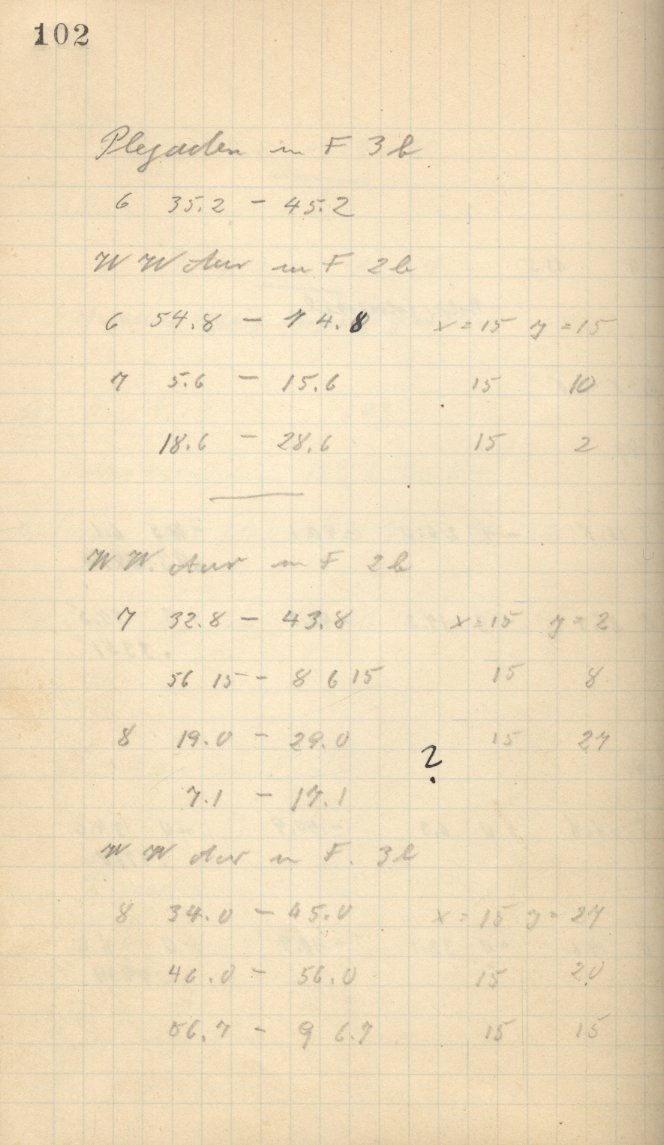 102
Plejaden in F 3b
6 35.2 – 45.2
WW Aur in F 2b
6 54.8 – 7 4.8 x = 15 y = 15
7 5.6 – 15.6 15 10
18.6 – 28.6 15 2
WW Aur in F 2b
7 32.8 – 43.8 x = 15 y = 2
56 15 – 8 6 15 15 8
8 19.0 – 29.0 15 27
?
7.1 – 17.1
WW Aur in F. 3b
8 34.0 – 45.0 x = 15 y = 27
46.0 – 56.0 15 20
56.7 – 9 6.7 15 15